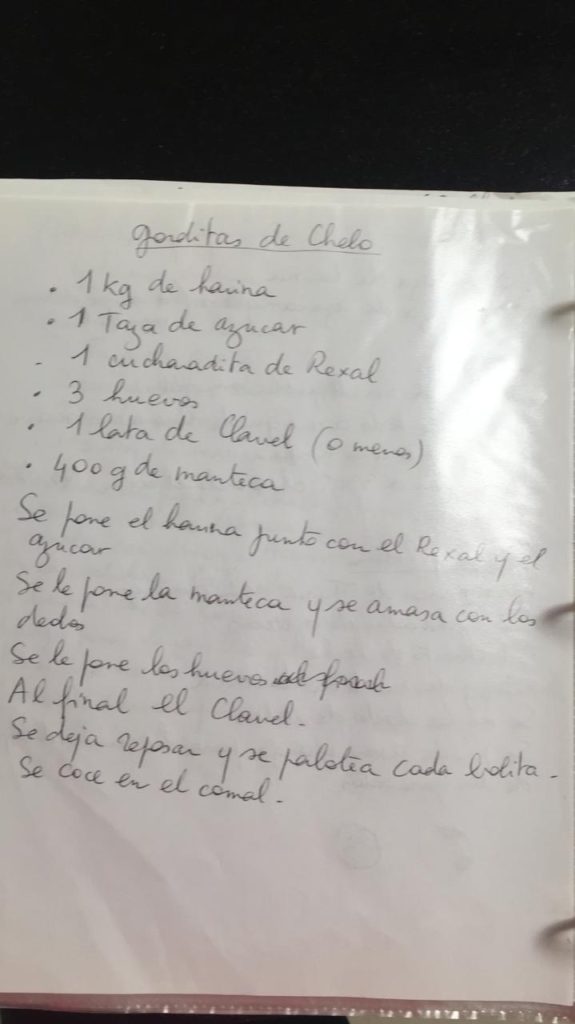 gorditas de Chelo
• 1 kg de harina
• 1 Taza de azucar
- 1 cucharadita de Rexal
• 3 huevos
• 1 lata de Clavel (o menos)
• 400 g de manteca
Se pone el harina junto con el Rexal y el
azucar
Se le pone la manteca y se amasa con los
dedos
Se le pone los huevos
Al final el Clavel.
Se deja reposar y se palotea cada bolita.
Se coce en el comal.